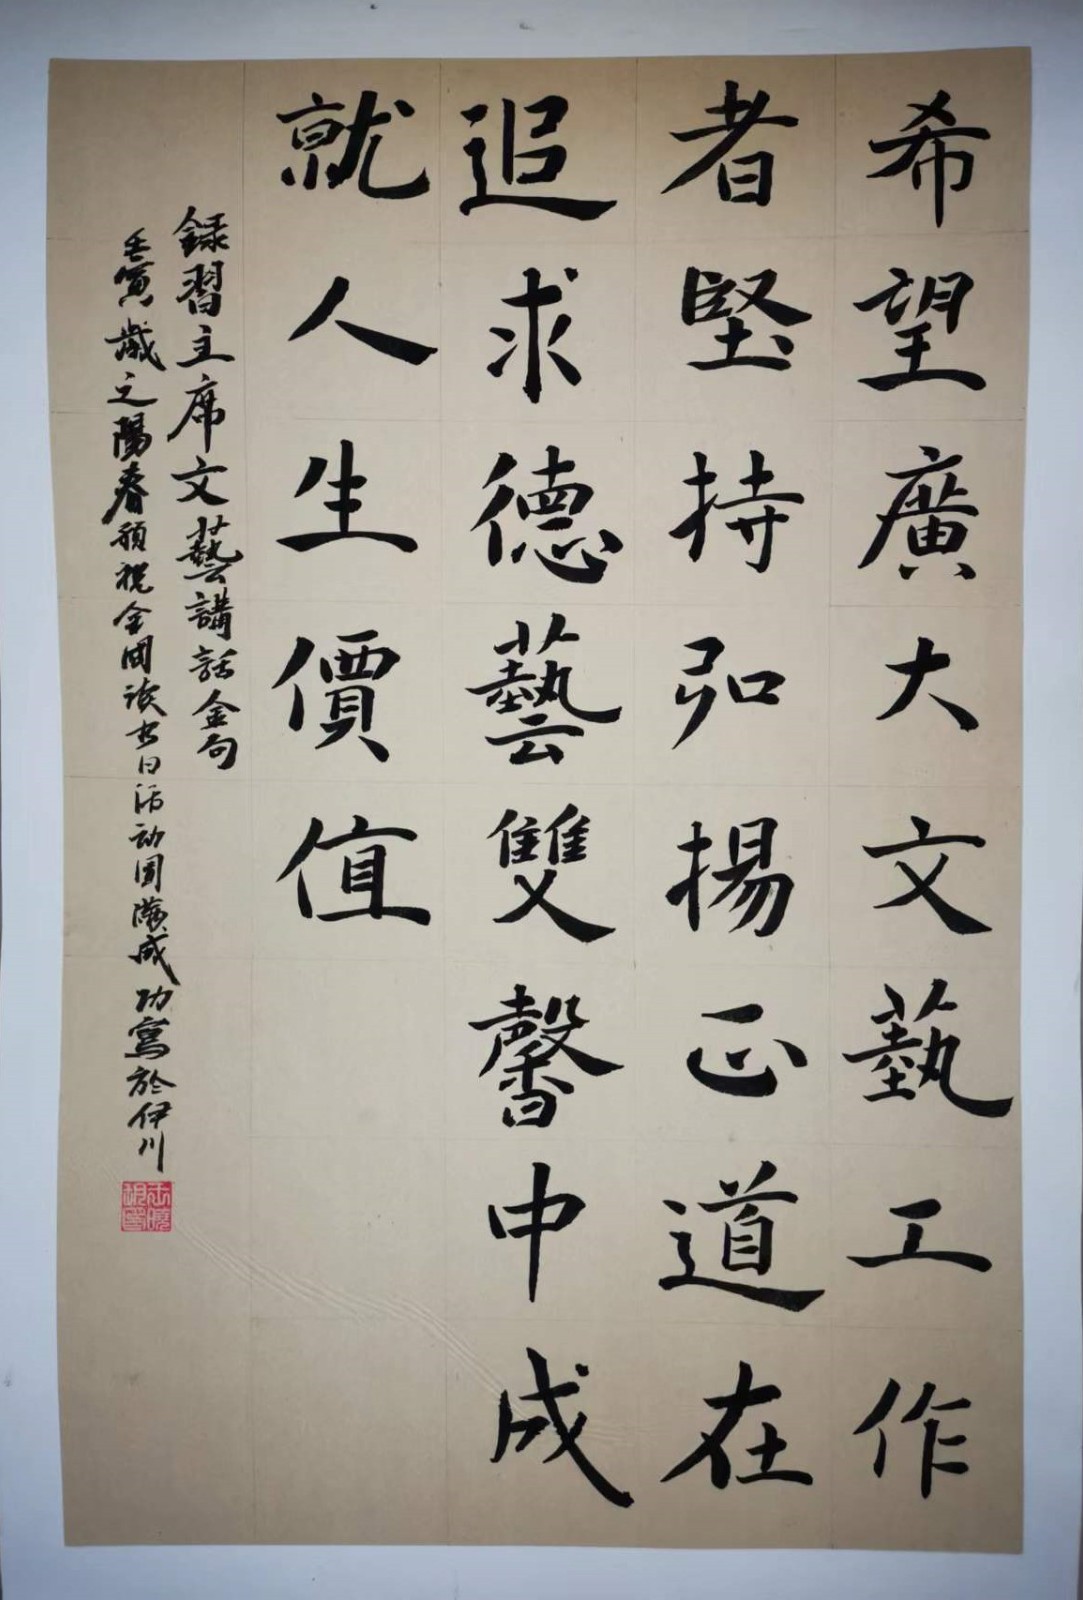 希望廣大文藝工作
者堅持弘揚正道在
追求德藝雙馨中成
就人生價值
録習主席文藝講話金句
壬寅歲之陽春預祝全国读书日活动圆满成功寫於伊川